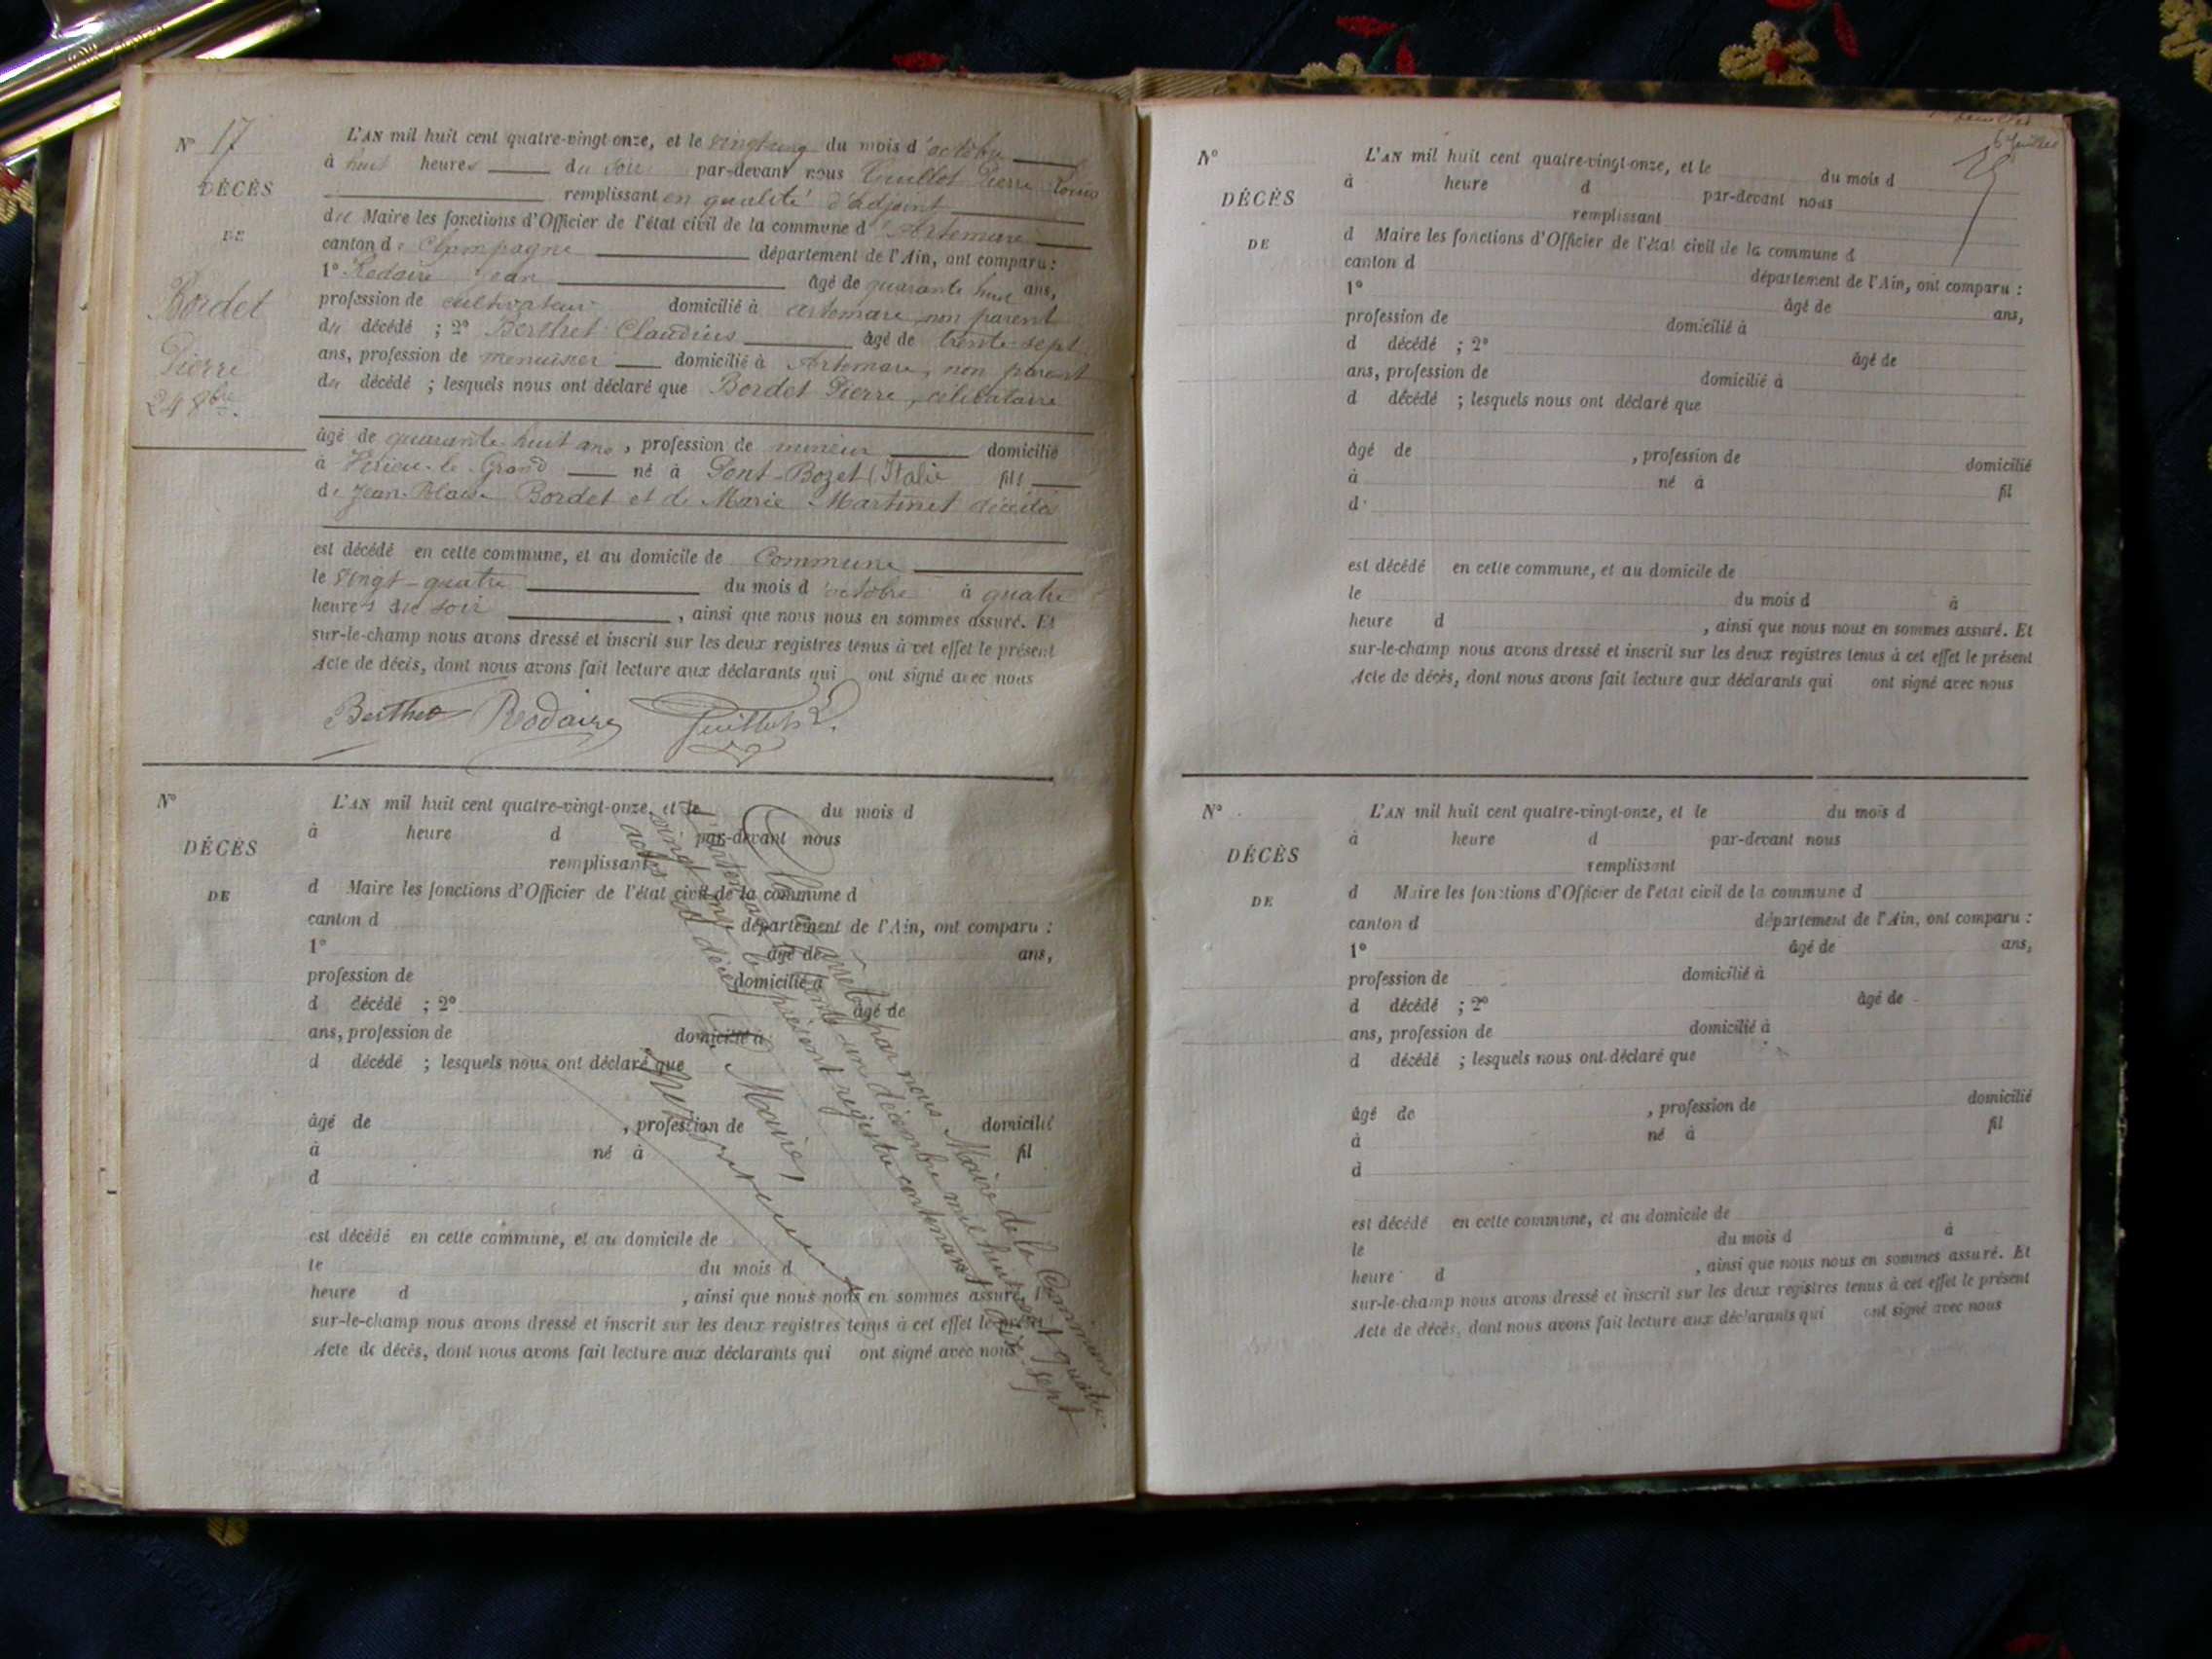 N° 17
DÉCÈS
DE
Bordet
Pierre
24 8bre.
L'AN mil huit cent quatre-vingt-onze, et le vingt cinq du mois d'octobre
à huit heures du soir par-devant nous Guillot Pierre Louis
remplissant en qualité d'adjoint
du Maire les fonctions d'Officier de l'état civil de la commune d'Artemare
canton de Champagne département de l'Ain, ont comparu :
1° Rodaire Jean âgé de quarante huit ans,
profession de cultivateur domicilié à artemare non parent
du décédé ; 2° Berthet Claudius âgé de trente-sept
ans, profession de menuisier domicilié à Artemare, non parent
du décédé ; lesquels nous ont déclaré que Bordet Pierre, célibataire
âgé de quarante-huit ans, profession de mineur domicilié
à Virieu-le-Grand né à Pont-Bozet (Italie fils
de Jean-Blaise Bordet et de Marie Martinet décédés
est décédé en cette commune, et au domicile de Commune
le vingt-quatre du mois d'octobre à quatre
heures du soir, ainsi que nous nous en sommes assuré. Et
sur-le-champ nous avons dressé et inscrit sur les deux registres tenus à cet effet le présent
Acte de décès, dont nous avons fait lecture aux déclarants qui ont signé avec nous
Berthet Rodaire Guillot
N°
DÉCÈS
DE
L'AN mil huit cent quatre-vingt-onze, et le du mois d
à heure d par-devant nous
remplissant
d Maire les fonctions d'Officier de l'état civil de la commune d
canton d département de l'Ain, ont comparu :
1° âgé de ans,
profession de domicilié à
d décédé ; 2° âgé de
ans, profession de domicilié à
d décédé ; lesquels nous ont déclaré que
âgé de , profession de domicilié
à né à fil
d
est décédé en cette commune, et au domicile de
le du mois d
heure d , ainsi que nous nous en sommes assuré. Et
sur-le-champ nous avons dressé et inscrit sur les deux registres tenus à cet effet le présent
Acte de décès, dont nous avons fait lecture aux déclarants qui ont signé avec nous
Clos et arrêté par nous Maire de la Commune
d'Artemare le trente un décembre mil huit cent quatre
vingt onze le présent registre contenant dix-sept
actes de décès
Le Maire
N°
DÉCÈS
DE
L'AN mil huit cent quatre-vingt-onze, et le du mois d
à heure d par-devant nous
remplissant
d Maire les fonctions d'Officier de l'état civil de la commune d
canton d département de l'Ain, ont comparu :
1° âgé de ans,
profession de domicilié à
d décédé ; 2° âgé de
ans, profession de domicilié à
d décédé ; lesquels nous ont déclaré que
âgé de , profession de domicilié
à né à fil
d
est décédé en cette commune, et au domicile de
le du mois d à
heure d , ainsi que nous nous en sommes assuré. Et
sur-le-champ nous avons dressé et inscrit sur les deux registres tenus à cet effet le présent
Acte de décès, dont nous avons fait lecture aux déclarants qui ont signé avec nous
N°
DÉCÈS
DE
L'AN mil huit cent quatre-vingt-onze, et le du mois d
à heure d par-devant nous
remplissant
d Maire les fonctions d'Officier de l'état civil de la commune d
canton d département de l'Ain, ont comparu :
1° âgé de ans,
profession de domicilié à
d décédé ; 2° âgé de
ans, profession de domicilié à
d décédé ; lesquels nous ont déclaré que
âgé de , profession de domicilié
à né à fil
d
est décédé en cette commune, et au domicile de
le du mois d à
heure d , ainsi que nous nous en sommes assuré. Et
sur-le-champ nous avons dressé et inscrit sur les deux registres tenus à cet effet le présent
Acte de décès, dont nous avons fait lecture aux déclarants qui ont signé avec nous